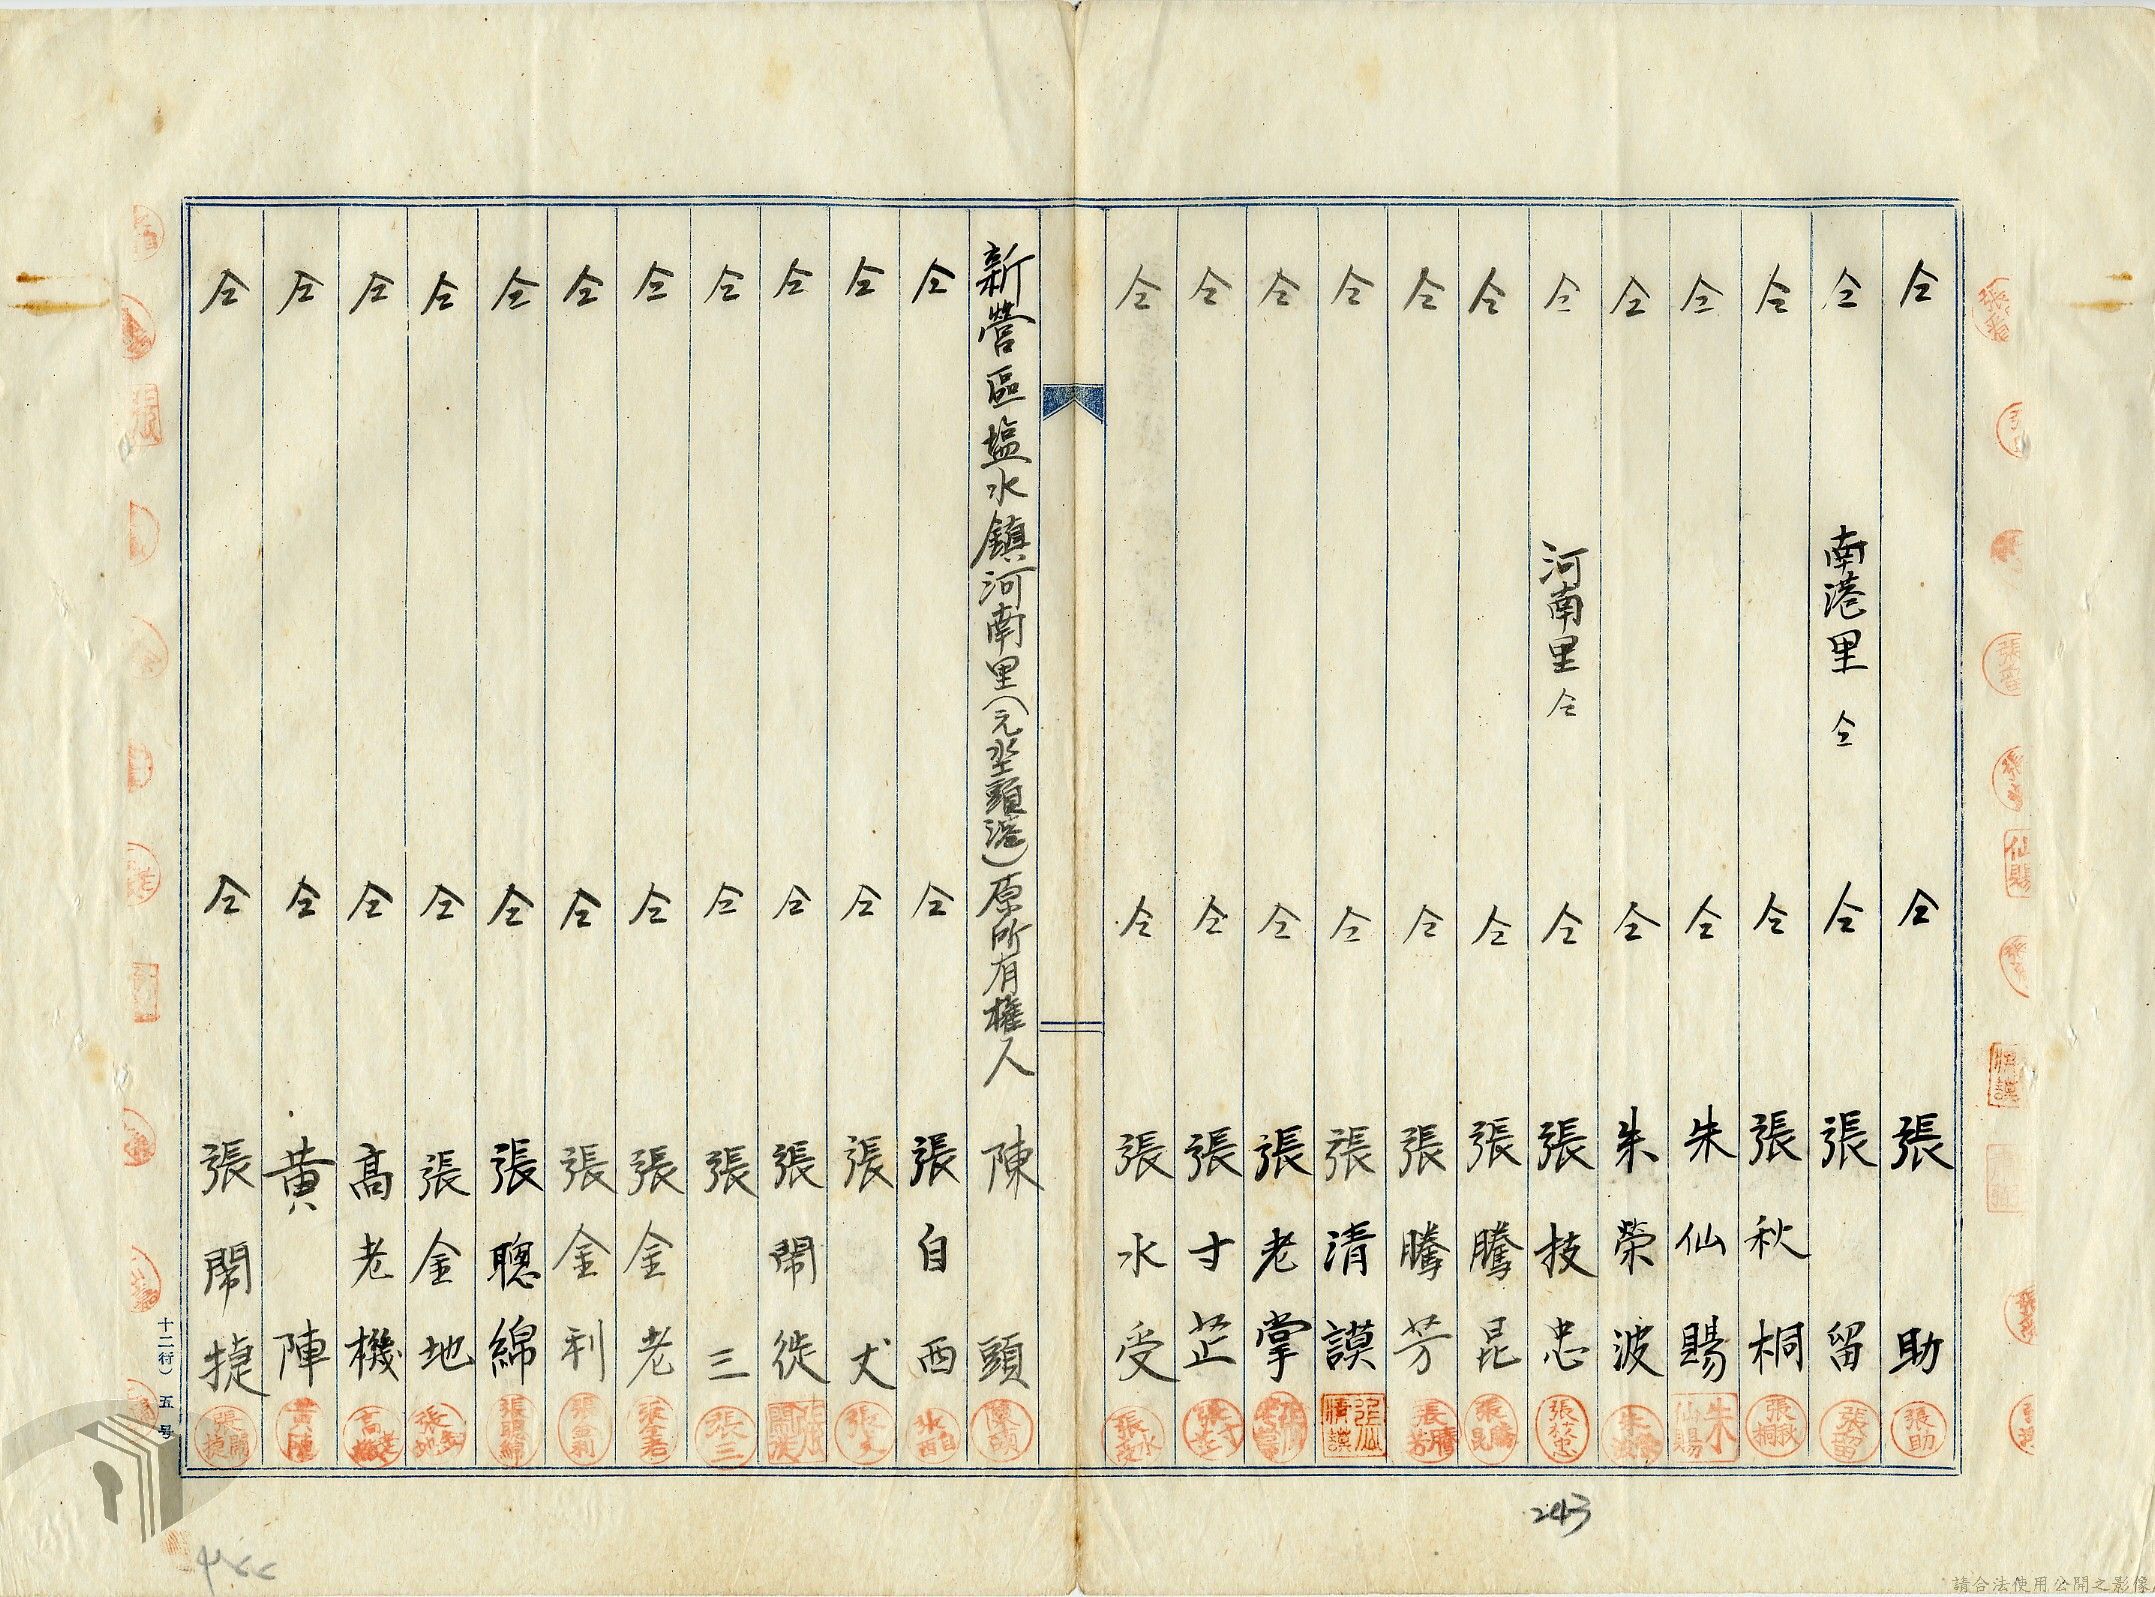 仝 仝 張助
仝 南港里 仝 仝 張留
仝 仝 張秋桐
仝 仝 朱仙賜
仝 仝 朱榮波
仝 河南里 仝 仝 張技忠
仝 仝 張騰昆
仝 仝 張騰芳
仝 仝 張清謨
仝 仝 張老掌
仝 仝 張寸芷
仝 仝 張水受
新營區塩水鎮河南里(元坔頭港)原所有權人 陳頭
仝 仝 張自西
仝 仝 張犬
仝 仝 張鬧徙
仝 仝 張三
仝 仝 張金老
仝 仝 張金利
仝 仝 張聰綿
仝 仝 張金地
仝 仝 高老機
仝 仝 黃陣
仝 仝 張鬧捷
十二行) 五号
243
請合法使用公開之影像